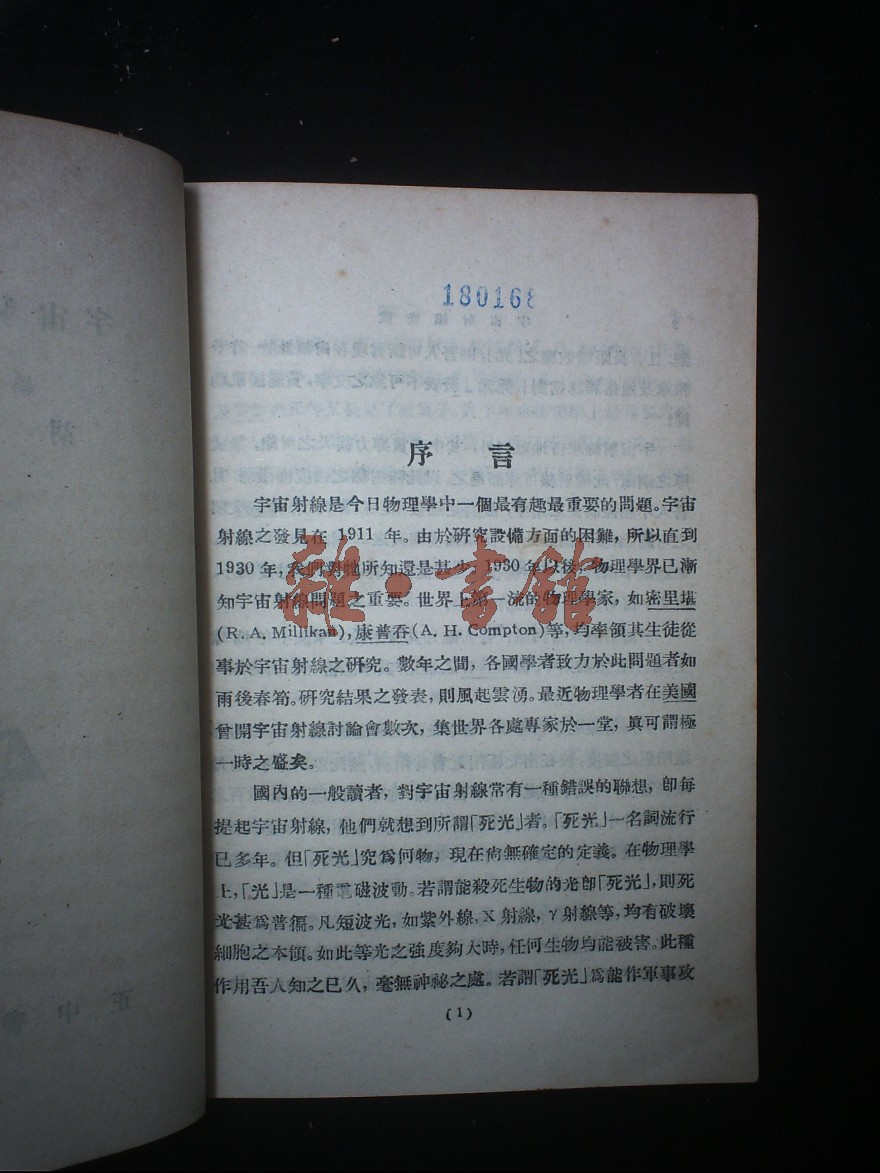 180168
序言
宇宙射線是今日物理學中一個最有趣最重要的問題。宇宙
射線之發見在 1911 年。由於硏究設備方面的困難，所以直到
1930 年，我們對牠所知還是甚少。1930年以後，物理學界已漸
知宇宙射線問題之重要。世界上第一流的物理學家，如密里堪
(R. A. Millikan)，康普吞(A. H. Compton)等，均率領其生徒從
事於宇宙射線之硏究。數年之間，各國學者致力於此問題者如
雨後春筍。硏究結果之發表，則風起雲湧。最近物理學者在美國
曾開宇宙射線討論會數次，集世界各處專家於一堂，眞可謂極
一時之盛矣。
國內的一般讀者，對宇宙射線常有一種錯誤的聯想，卽每
提起宇宙射線，他們就想到所謂「死光」者。「死光」一名詞流行
已多年。但「死光」究爲何物，現在尙無確定的定義。在物理學
上，「光」是一種電磁波動。若謂能殺死生物的光卽「死光」，則死
光甚爲普徧。凡短波光，如紫外線，X射線，γ射線等，均有破壞
細胞之本領。如此等光之强度夠大時，任何生物均能被害。此種
作用吾人知之已久，毫無神祕之處。若謂「死光」爲能作軍事攻
(1)
雜·書館